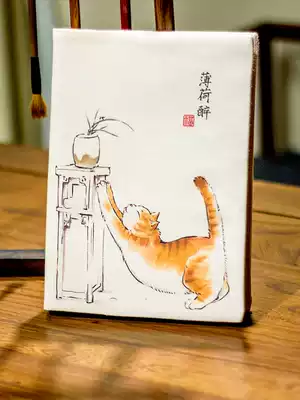 薄荷醉